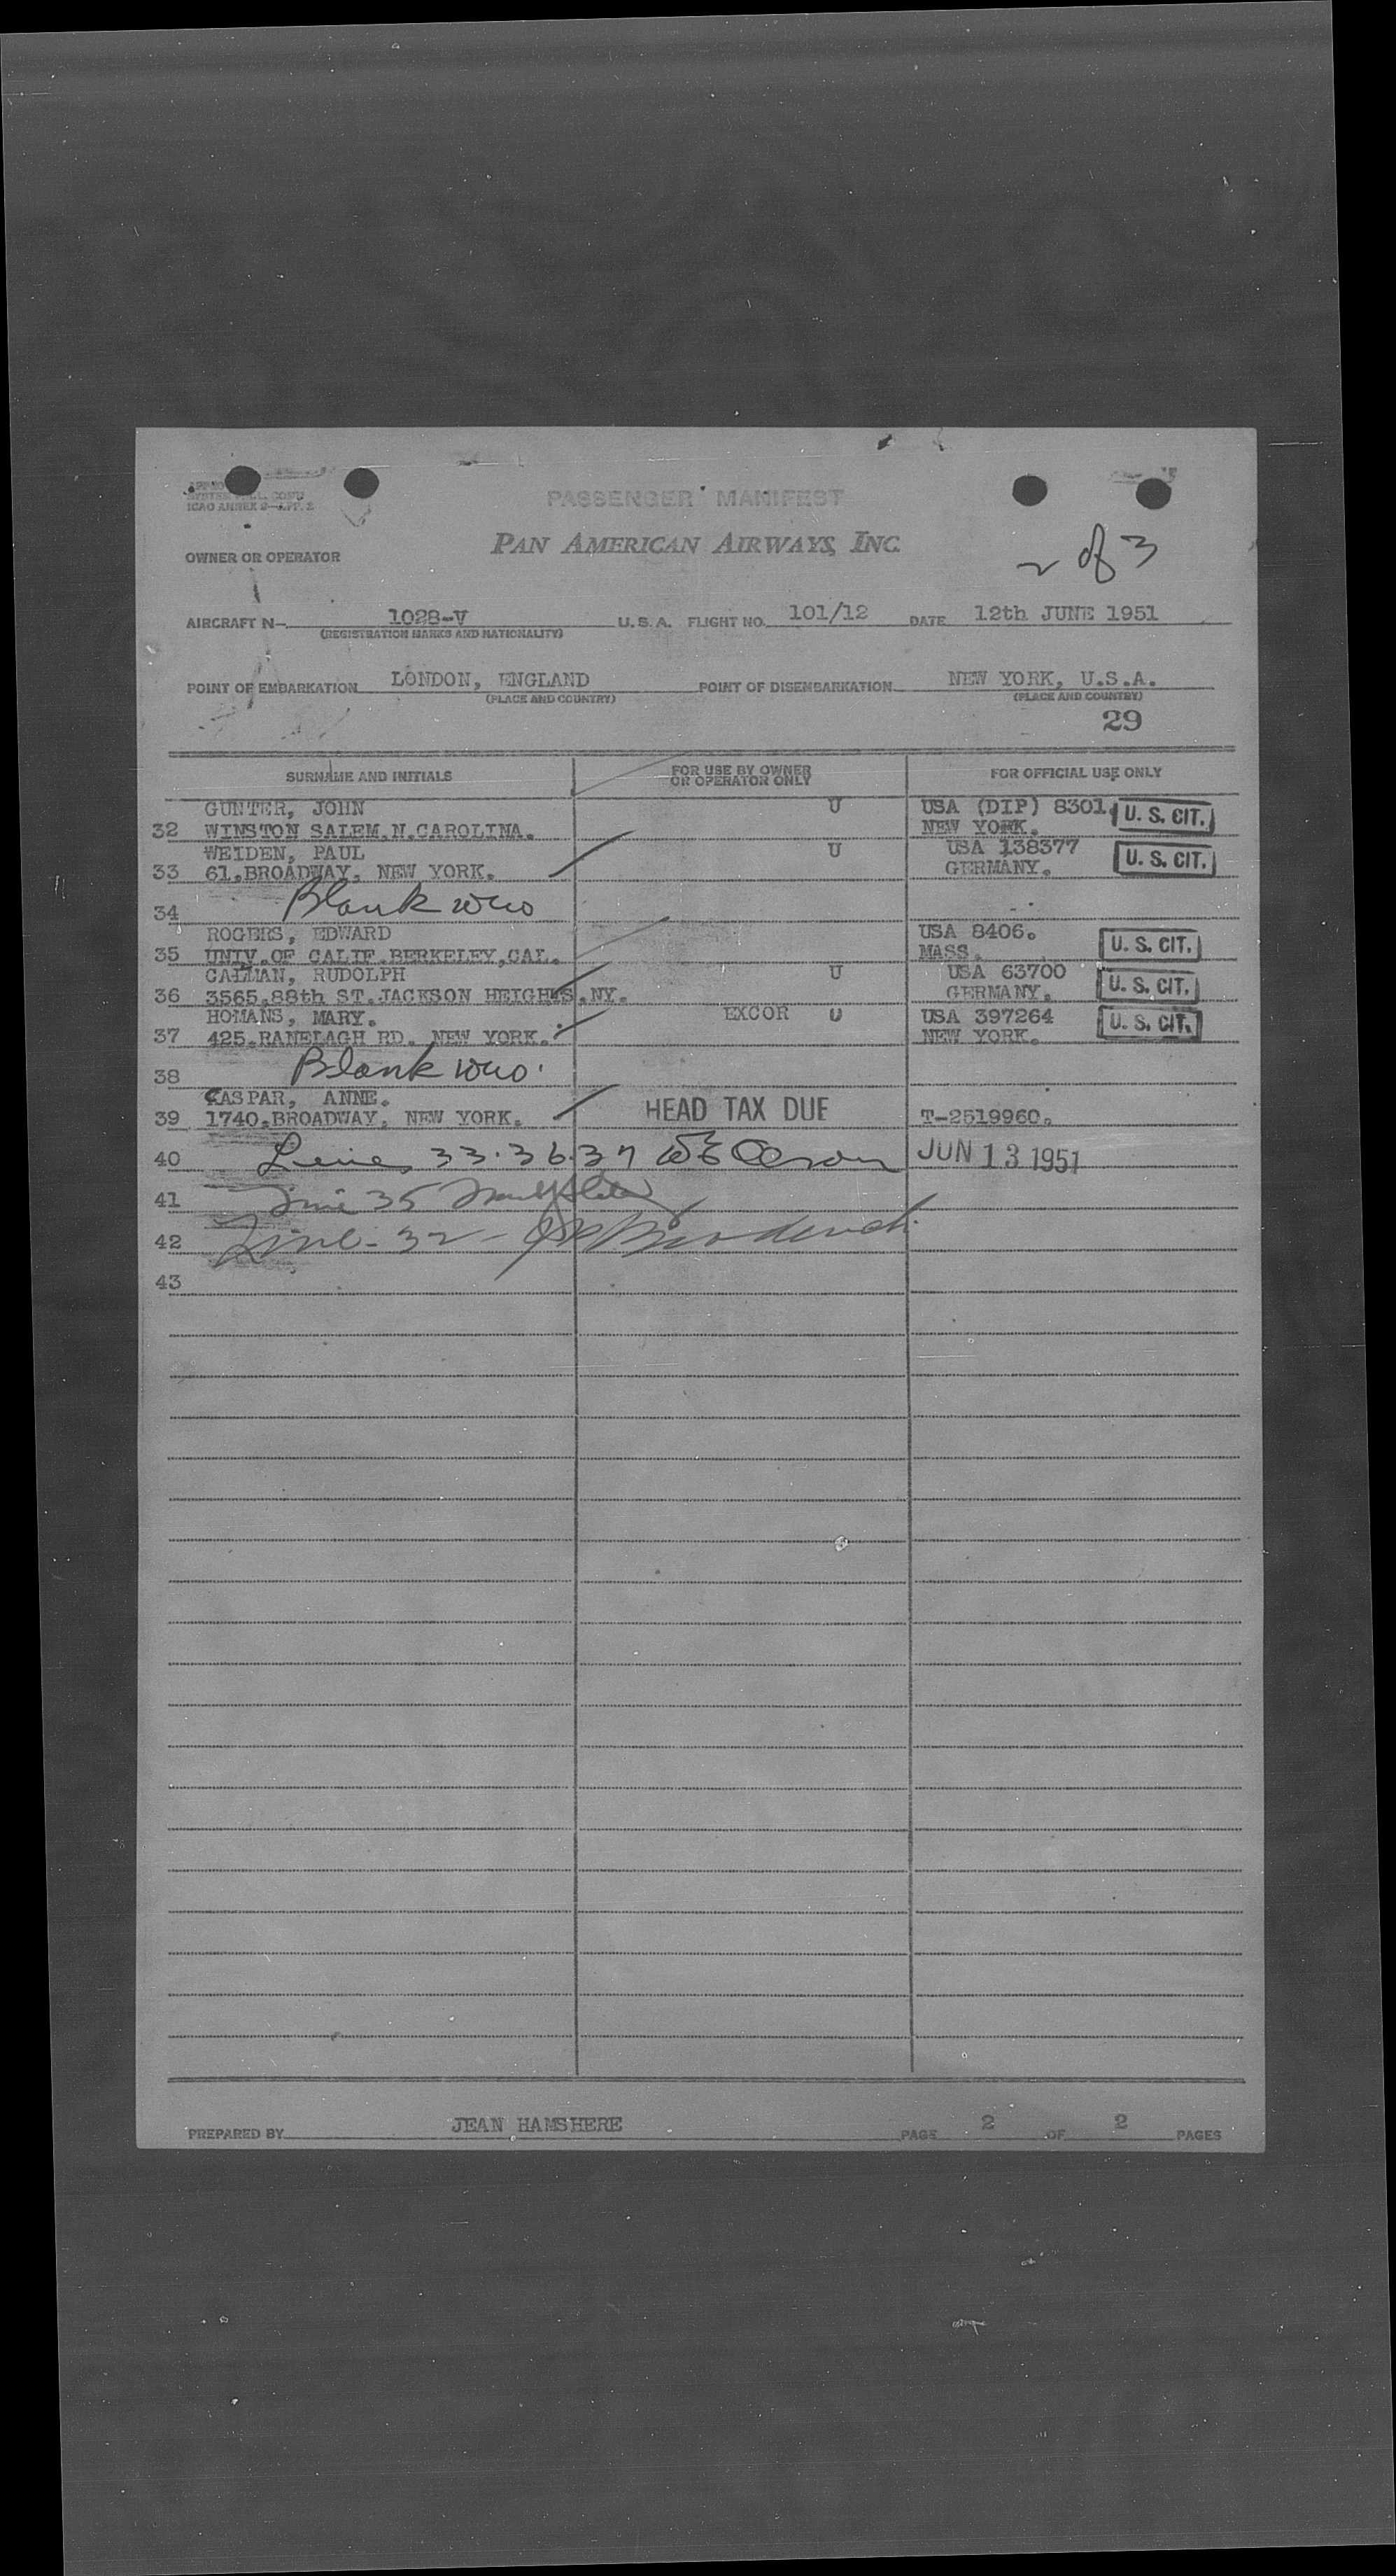 ICAO ANNEX 9—APP. 2
PASSENGER MANIFEST
OWNER OR OPERATOR
PAN AMERICAN AIRWAYS, INC.
2 of 3
AIRCRAFT N- 1028-V U.S.A. FLIGHT NO. 101/12 DATE 12th JUNE 1951
(REGISTRATION MARKS AND NATIONALITY)
POINT OF EMBARKATION LONDON, ENGLAND POINT OF DISEMBARKATION NEW YORK, U.S.A.
(PLACE AND COUNTRY) (PLACE AND COUNTRY)
29
SURNAME AND INITIALS FOR USE BY OWNER OR OPERATOR ONLY FOR OFFICIAL USE ONLY
GUNTER, JOHN U USA (DIP) 8301. U. S. CIT.
32 WINSTON SALEM.N.CAROLINA. NEW YORK.
WEIDEN, PAUL U USA 138377 U. S. CIT.
33 61.BROADWAY. NEW YORK. GERMANY.
34 Blank
ROGERS, EDWARD USA 8406. U. S. CIT.
35 UNIV.OF CALIF.BERKELEY,CAL. MASS.
CALLMAN, RUDOLPH U USA 63700 U. S. CIT.
36 3565.88th ST.JACKSON HEIGHTS.NY. GERMANY.
HOMANS, MARY. EXCOR U USA 397264 U. S. CIT.
37 425.RANELAGH RD. NEW YORK. NEW YORK.
38 Blank
KASPAR, ANNE.
39 1740.BROADWAY. NEW YORK. HEAD TAX DUE T-2519960.
40 Lines 33.36.37 JUN 13 1951
41 Line 35
42 Line - 32 -
43
PREPARED BY JEAN HAMSHERE PAGE 2 OF 2 PAGES